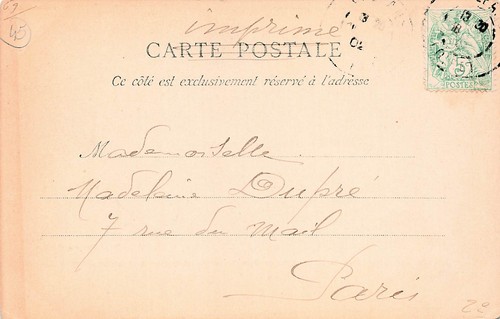 imprimé
45
CARTE POSTALE
Ce côté est exclusivement réservé à l'adresse
5
POSTES
Mademoiselle
Madeleine Dupré
7 rue du Mail
Paris